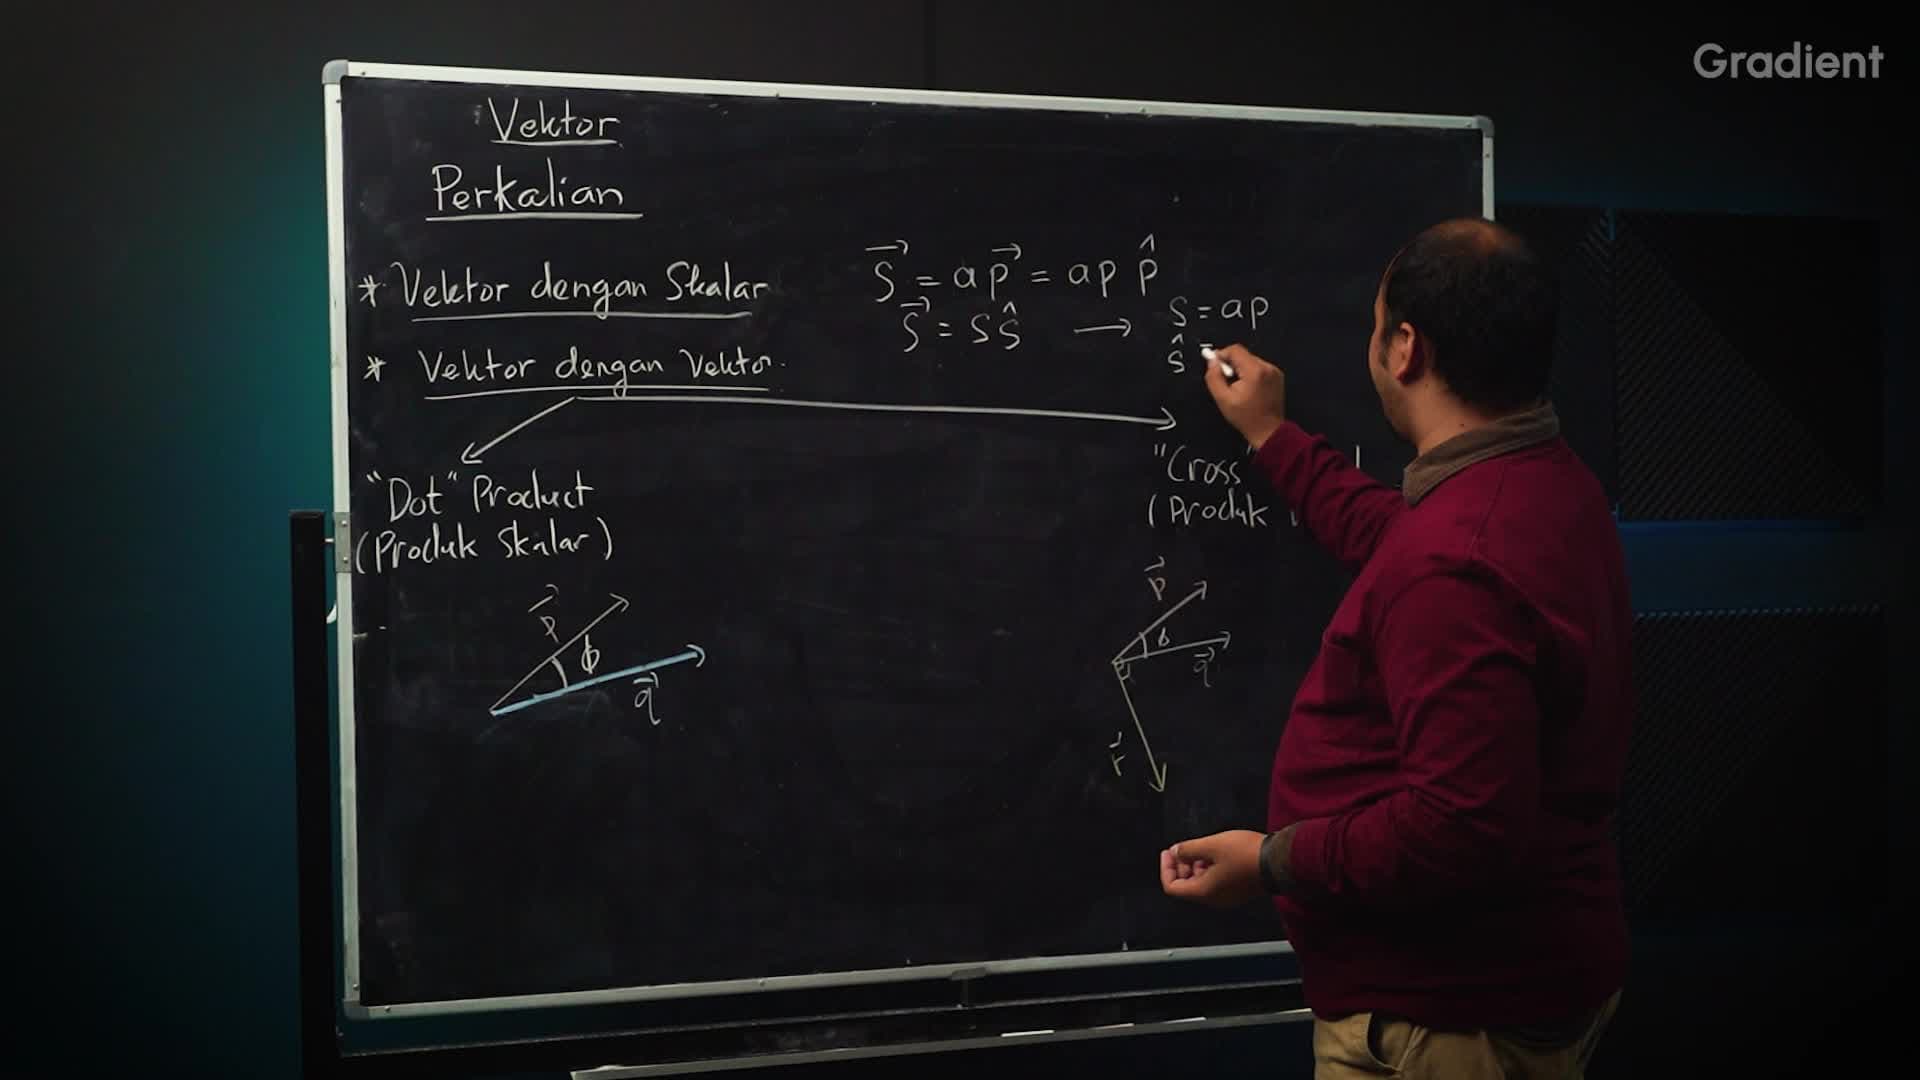 Gradient
Vektor
Perkalian
* Vektor dengan Skalar
$\vec{S} = a\vec{p} = ap\,\hat{p}$
$\vec{S} = S\hat{S}$ → $S = ap$
$\hat{S} =$
* Vektor dengan Vektor.
"Dot" Product
(Produk Skalar)
"Cross"
(Produk
$\vec{p}$
ϕ
$\vec{q}$
$\vec{p}$
$\vec{q}$
$\vec{r}$